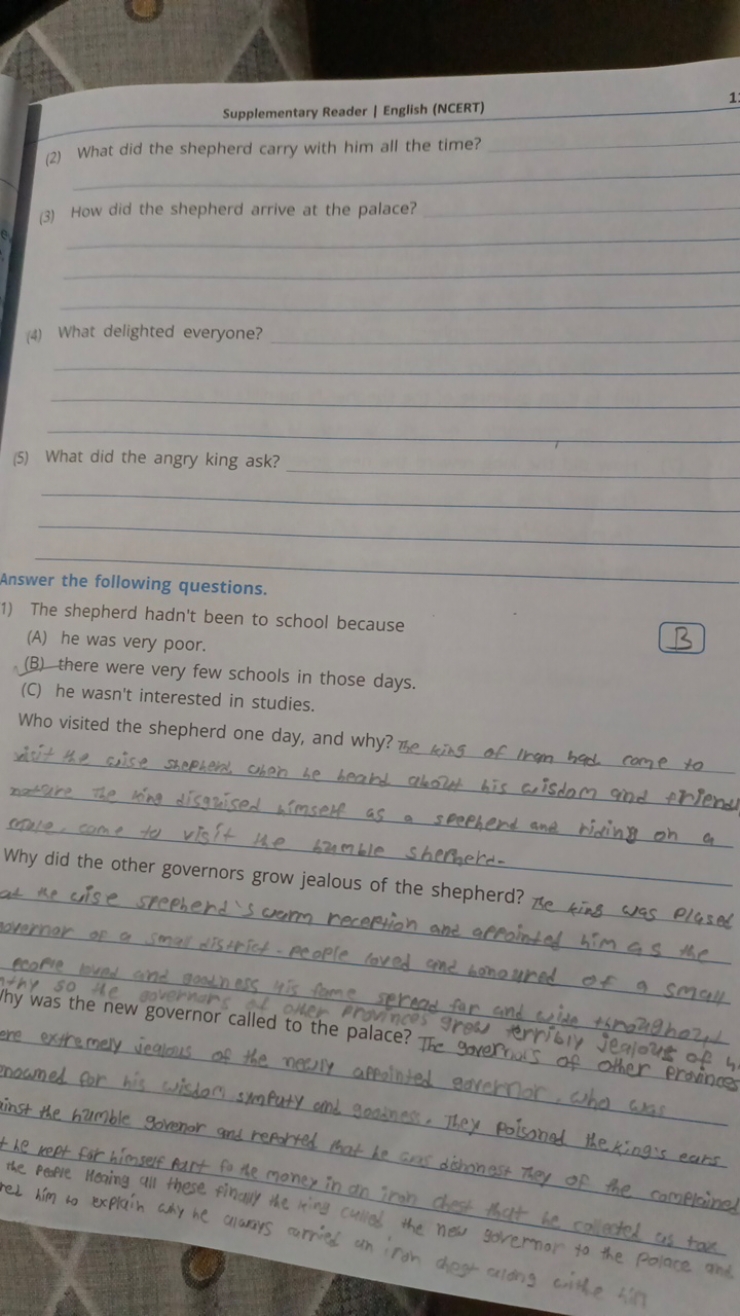 Supplementary Reader | English (NCERT)
(2) What did the shepherd carry with him all the time?
(3) How did the shepherd arrive at the palace?
(4) What delighted everyone?
(5) What did the angry king ask?
Answer the following questions.
1) The shepherd hadn't been to school because
B
(A) he was very poor.
(B) there were very few schools in those days.
(C) he wasn't interested in studies.
Who visited the shepherd one day, and why? The king of Iran had come to
visit the wise shepherd, when he heard about his wisdom and friend
nature the king disguised himself as a speepherd and riding on a
come to visit the humble sherherd.
Why did the other governors grow jealous of the shepherd? The king was plased
at the wise speepherd's warm reception and appointed him as the
governor of a small district. people loved and honoured of a small
people loved and goodness his fame spread far and wide throughout
so the governors of other provinces grew terribly jealous of h
hy was the new governor called to the palace? The governors of other provinces
ere extremely jealous of the newly appointed governor, who was
enowned for his wisdom symputy and goodness. They poisoned the king's ears
ainst the humble govenor and reported that he was dishonest they of the complained
t he kept for himself part fo the money in an iron chest that he collected as tax
the people Hening all these finally the king called the new governor to the palace and
red him to explain why he always carried an iron chest along withe him